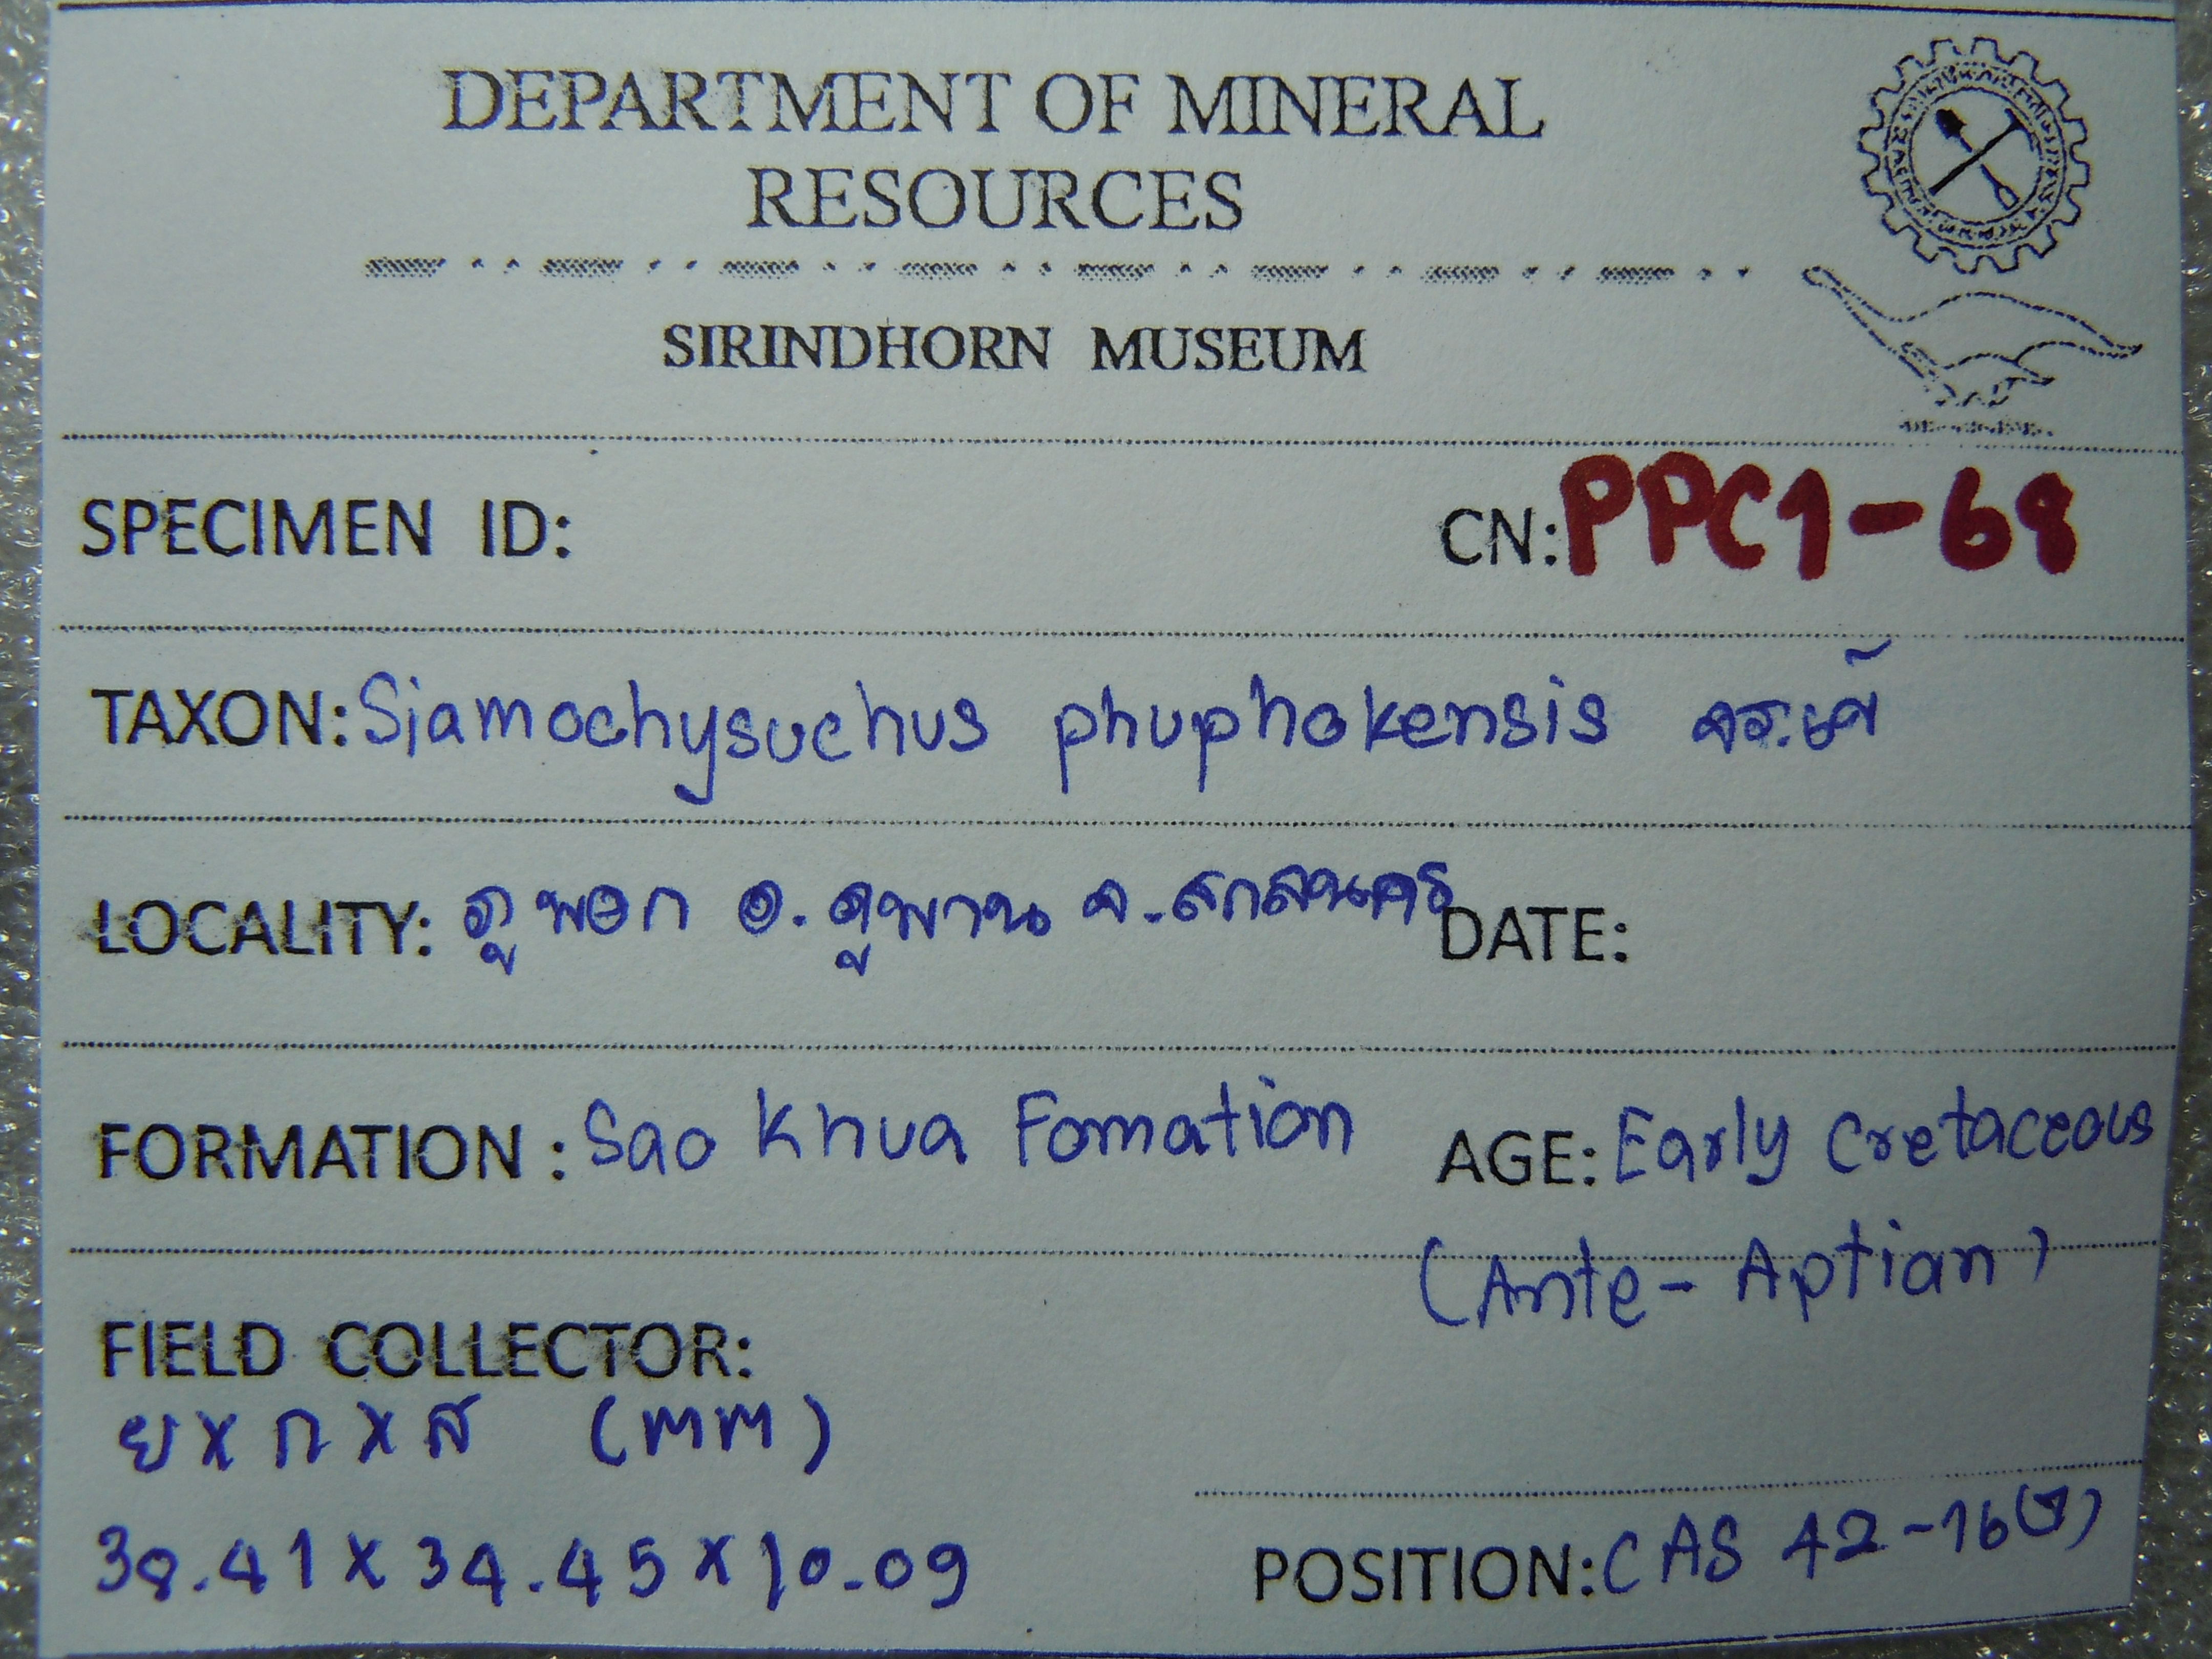 DEPARTMENT OF MINERAL
RESOURCES
SIRINDHORN MUSEUM
SPECIMEN ID: CN: PPC1-68
TAXON: Siamochysuchus phuphokensis จระเข้
LOCALITY: ภูพอก อ.ภูพาน จ.สกลนคร DATE:
FORMATION : Sao Khua Fomation AGE: Early Cretaceous
(Ante-Aptian)
FIELD COLLECTOR:
ย x ก x ส (MM)
38.41 x 34.45 x 10.09
POSITION: CAS 42-16(7)